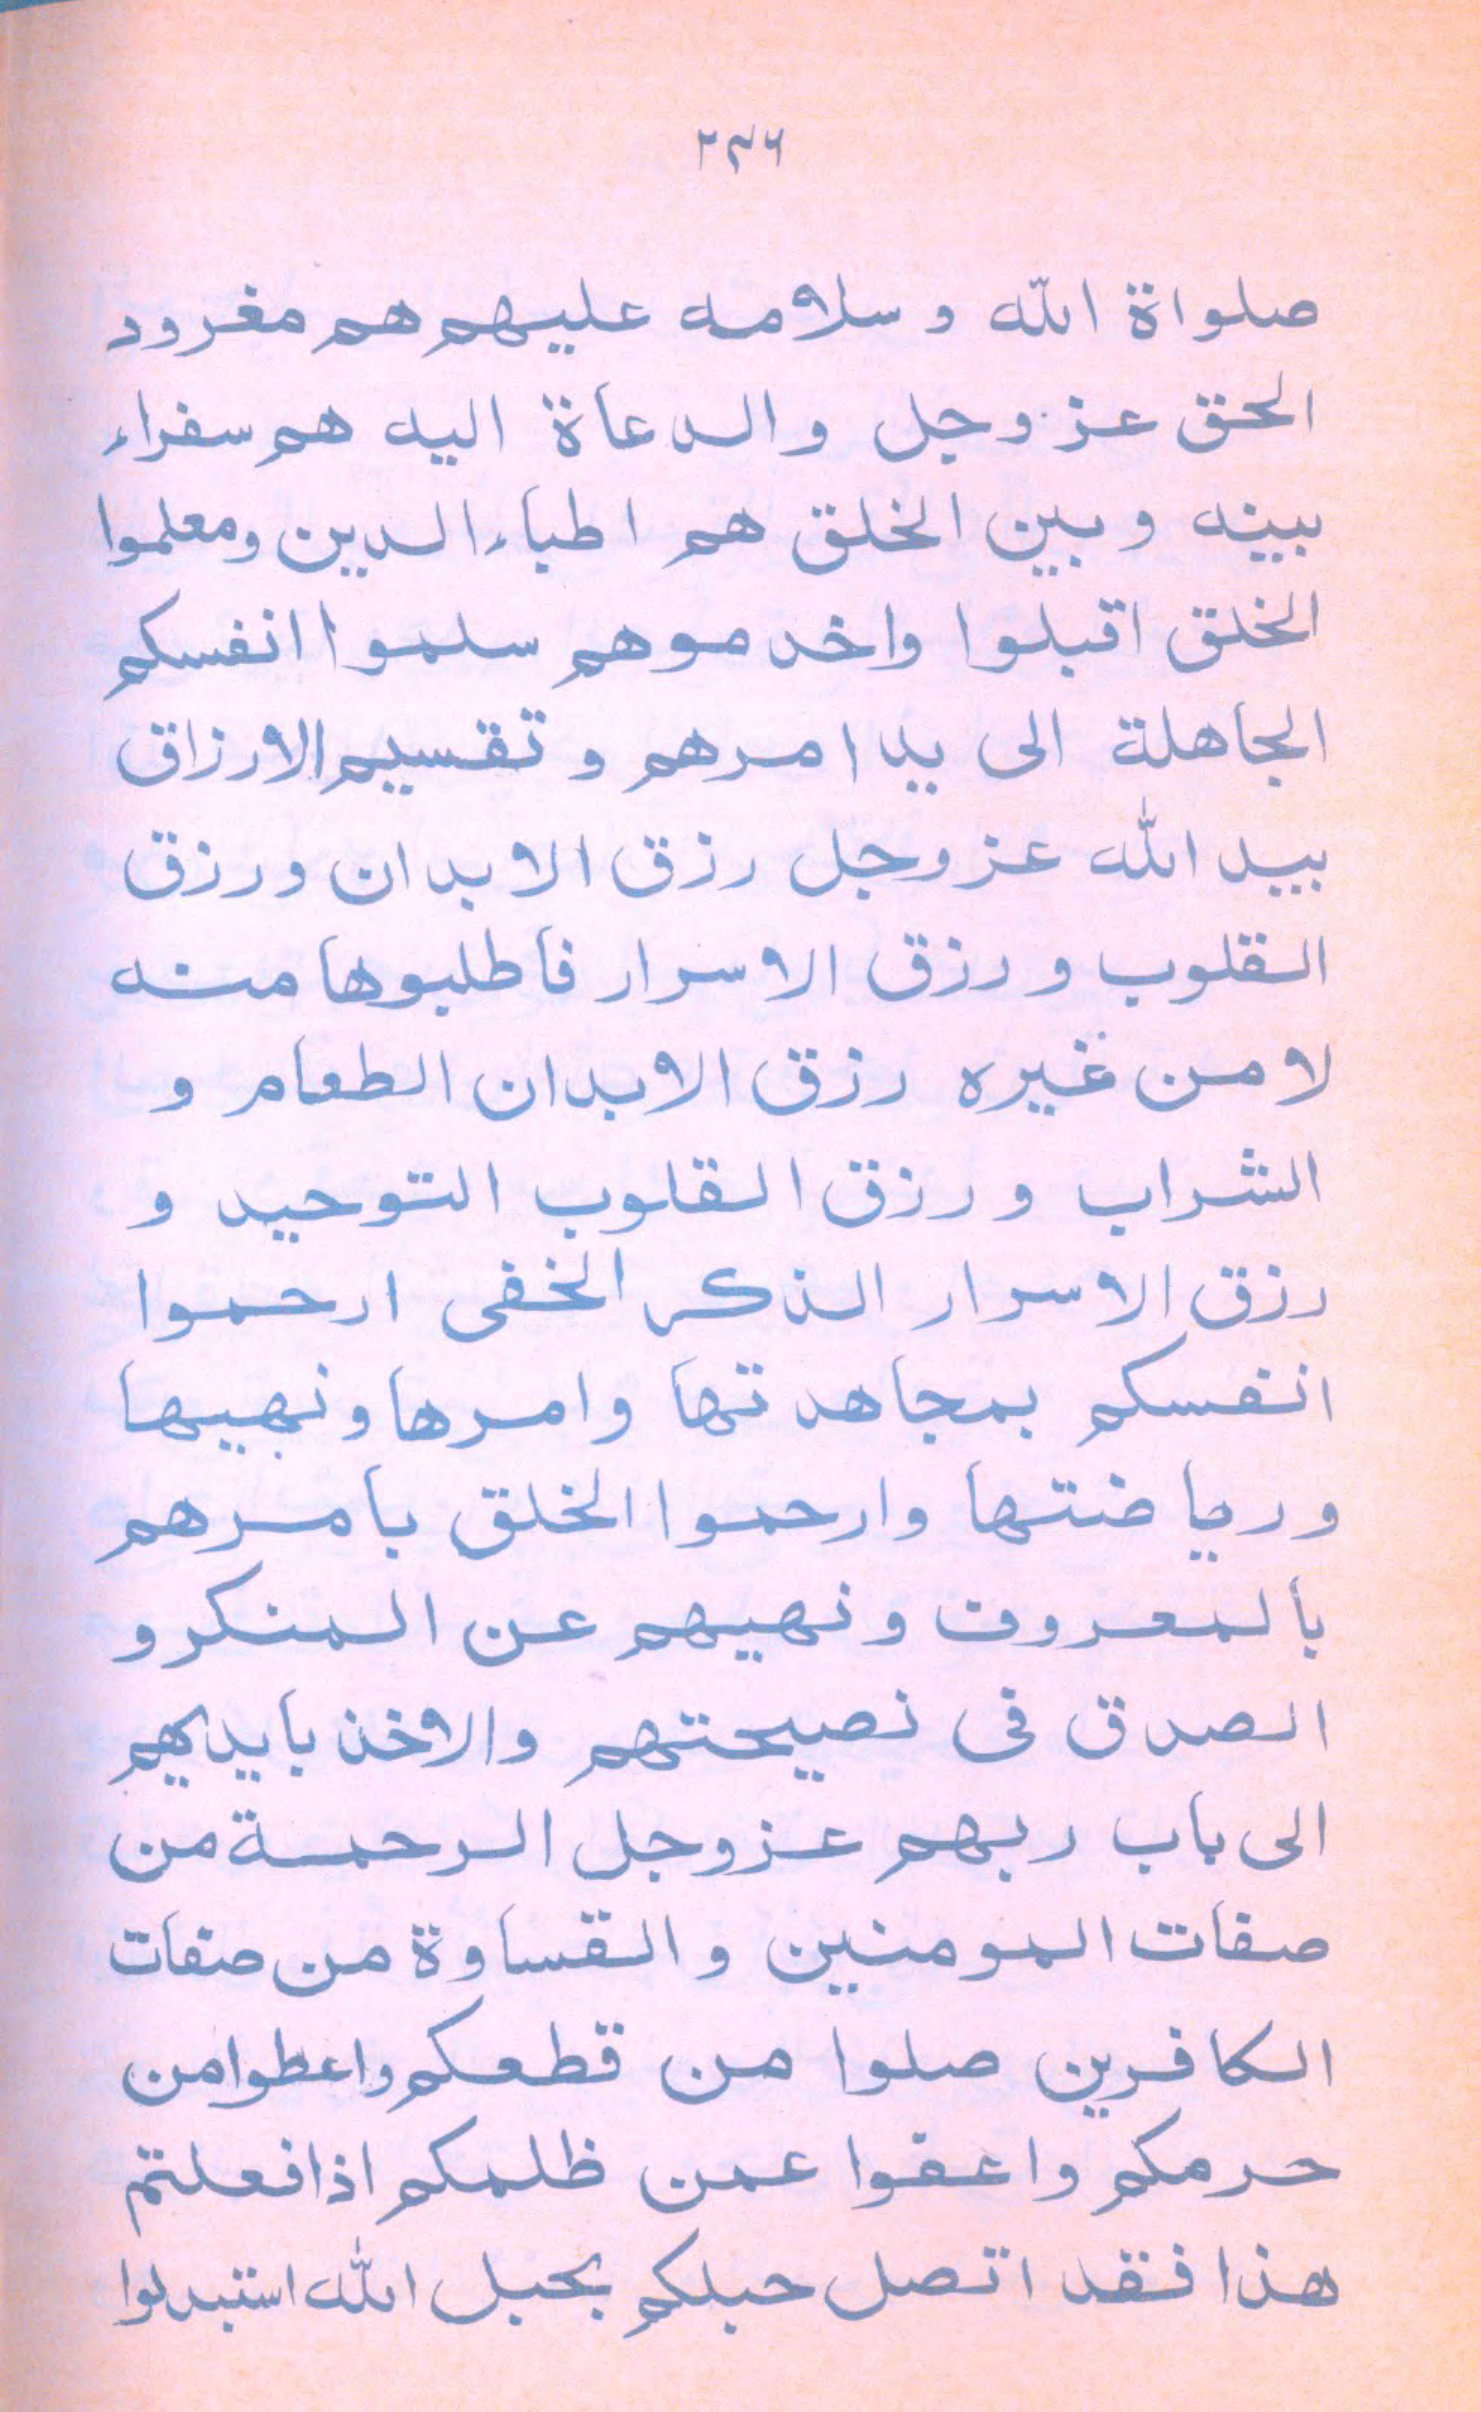 ٢٣٦
صلواة الله و سلامه عليهم هم مغرود
الحق عز وجل والدعاة اليه هم سفراء
بينه وبين الخلق هم اطباء الدين ومعلموا
الخلق اقبلوا واخدموهم سلموا انفسكم
الجاهلة الى يد امرهم وتقسيم الارزاق
بيد الله عز وجل رزق الابدان ورزق
القلوب ورزق الاسرار فاطلبوها منه
لا من غيره رزق الابدان الطعام و
الشراب ورزق القلوب التوحيد و
رزق الاسرار الذكر الخفى ارحموا
انفسكم بمجاهدتها وامرها ونهيها
ورياضتها وارحموا الخلق بامرهم
بالمعروف ونهيهم عن المنكر و
الصدق فى نصيحتهم والاخذ بايديهم
الى باب ربهم عز وجل الرحمة من
صفات المومنين والقساوة من صفات
الكافرين صلوا من قطعكم واعطوا من
حرمكم واعفوا عمن ظلمكم اذا فعلتم
هذا فقد اتصل حبلكم بحبل الله استبدلوا